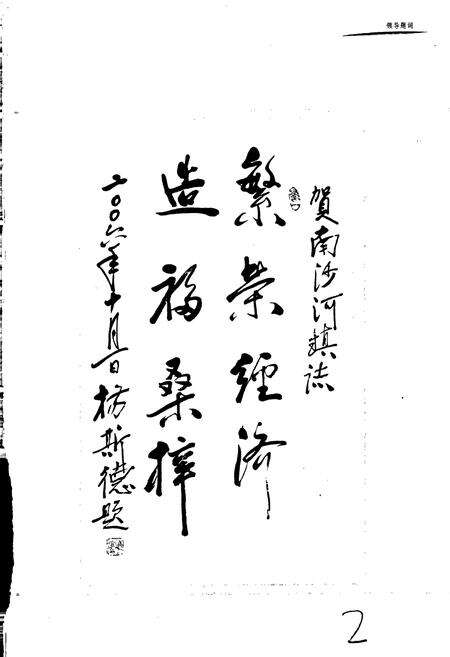 领导题词
賀南沙河鎮誌
繁荣經济
造福桑梓
二〇〇六年十月一日 杨斯德题
2